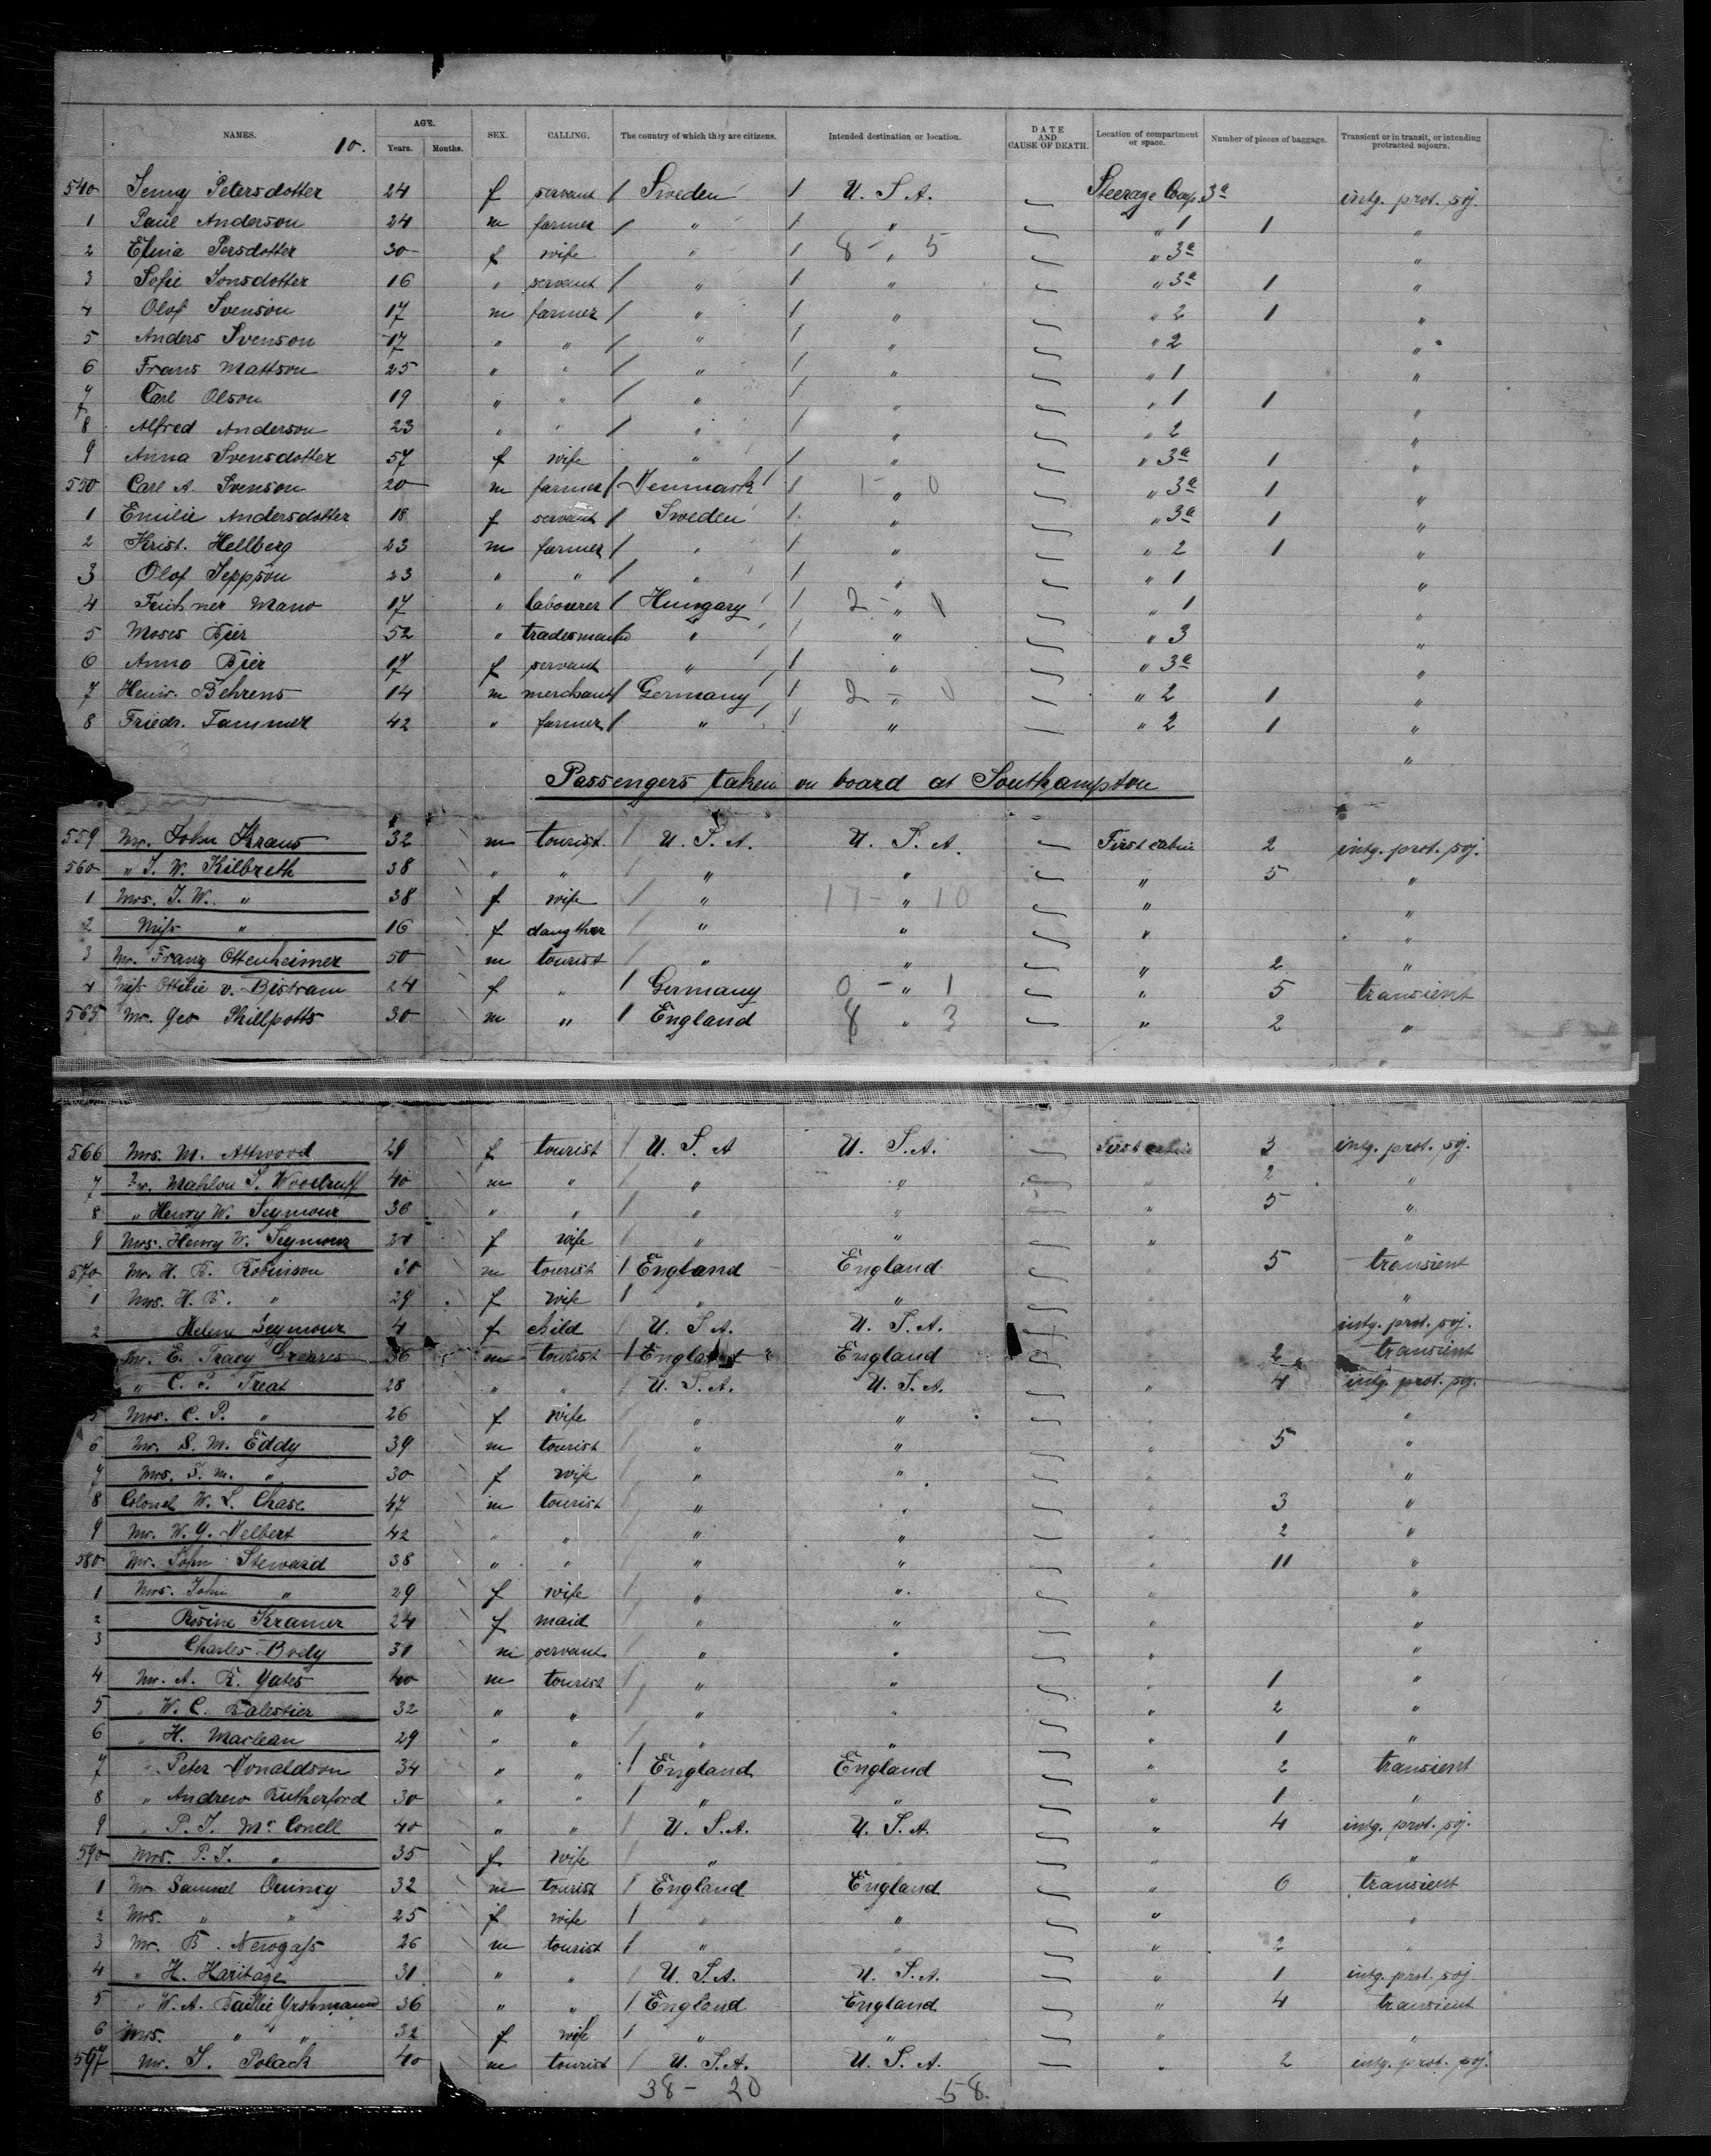 10.
NAMES. AGE. Years. Months. SEX. CALLING. The country of which they are citizens. Intended destination or location. DATE AND CAUSE OF DEATH. Location of compartment or space. Number of pieces of baggage. Transient or in transit, or intending protracted sojourn.
540 Jenny Petersdotter 24 f servant Sweden U. S. A. Steerage Comp. 3a intg. prot. soj.
1 Paul Anderson 24 m farmer " " " 1 1 "
2 Persdotter 30 f wife " 8 - " 5 " 3a "
3 Sofie Jonsdotter 16 " servant " " " 3a 1 "
4 Olof Svenson 17 m farmer " " " 2 1 "
5 Anders Svenson 17 " " " " " 2 "
6 Frans Mattson 25 " " " " " 1 "
7 Carl Olson 19 " " " " " 1 1 "
8 Alfred Anderson 23 " " " " " 2 "
9 Anna Svensdotter 57 f wife " " " 3a 1 "
550 Carl A. Svenson 20 m farmer Denmark 1 - " 0 " 3a 1 "
1 Emilie Andersdotter 18 f servant Sweden " " 3a 1 "
2 Krist. Hellberg 23 m farmer " " " 2 1 "
3 Olof Jeppson 23 " " " " " 1 "
4 Mano 17 " labourer Hungary 2 - " " 1 "
5 Moses Bier 52 " tradesman " " " 3 "
6 Anna Bier 17 f servant " " " 3a "
7 Heinr. Behrens 14 m merchant Germany 2 - " 0 " 2 1 "
8 Friedr. Tammer 42 " farmer " " " 2 1 "
Passengers taken on board at Southampton
559 Mr. John Kraus 32 m tourist. U. S. A. U. S. A. First cabin 2 intg. prot. soj.
560 " J. W. Kilbreth 38 " " " " " 5 "
1 Mrs. J. W. " 38 f wife " 17 - " 10 " "
2 Miss " 16 f daugther " " " "
3 Mr. Franz Ottenheimer 50 m tourist " " " 2 "
4 Miss Ottilie v. Bistram 24 f " Germany 0 - " 1 " 5 transient
565 Mr. Geo Phillpotts 30 m " England 8 " 3 " 2 "
566 Mrs. M. Attwood 29 f tourist U. S. A U. S. A. First cabin 3 intg. prot. soj.
7 Mahlon S. Woodruff 40 m " " " " 2 "
8 " Henry W. Seymour 36 " " " " " 5 "
9 Mrs. Henry W. Seymour f wife " " " "
570 Mr. H. B. Robinson 30 m tourist England England " 5 transient
1 Mrs. H. B. " 29 f wife " " " "
2 Helene Seymour 4 f child U. S. A. U. S. A. " intg. prot. soj.
Mr. E. Tracy 36 m tourist England England " 2 transient
" C. P. Treat 28 " " U. S. A. U. S. A. " 4 intg. prot. soj.
5 Mrs. C. P. " 26 f wife " " " "
6 Mr. S. M. Eddy 39 m tourist " " " 5 "
7 Mrs. S. M. " 30 f wife " " " "
8 Colonel W. L. Chase 47 m tourist " " " 3 "
9 Mr. W. G. Velbert 42 " " " " " 2 "
580 Mr. John Steward 38 " " " " " 11 "
1 Mrs. John " 29 f wife " " " "
2 Rosine Kramer 24 f maid " " " "
3 Charles Body 30 m servant " " " "
4 Mr. A. R. Yates 40 m tourist " " " 1 "
5 " W. C. Balestier 32 " " " " " 2 "
6 " H. Maclean 29 " " " " " 1 "
7 " Peter Donaldson 34 " " England England " 2 transient
8 " Andrew Rutherford 30 " " " " " 1 "
9 " P. J. Mc Conell 40 " " U. S. A. U. S. A. " 4 intg. prot. soj.
590 Mrs. P. J. " 35 f wife " " "
1 Mr. Samuel Quincy 32 m tourist England England " 6 transient
2 Mrs. " " 25 f wife " " " "
3 Mr. B. Newgass 26 m tourist " " " 2 "
4 " H. Haritage 31 " " U. S. A. U. S. A. " 1 intg. prot. soj.
5 " W. A. Baillie Grohmann 36 " " England England " 4 transient
6 Mrs. " " 32 f wife " " " "
597 Mr. J. Polack 40 m tourist U. S. A. U. S. A. " 2 intg. prot. soj.
38 - 20 58.